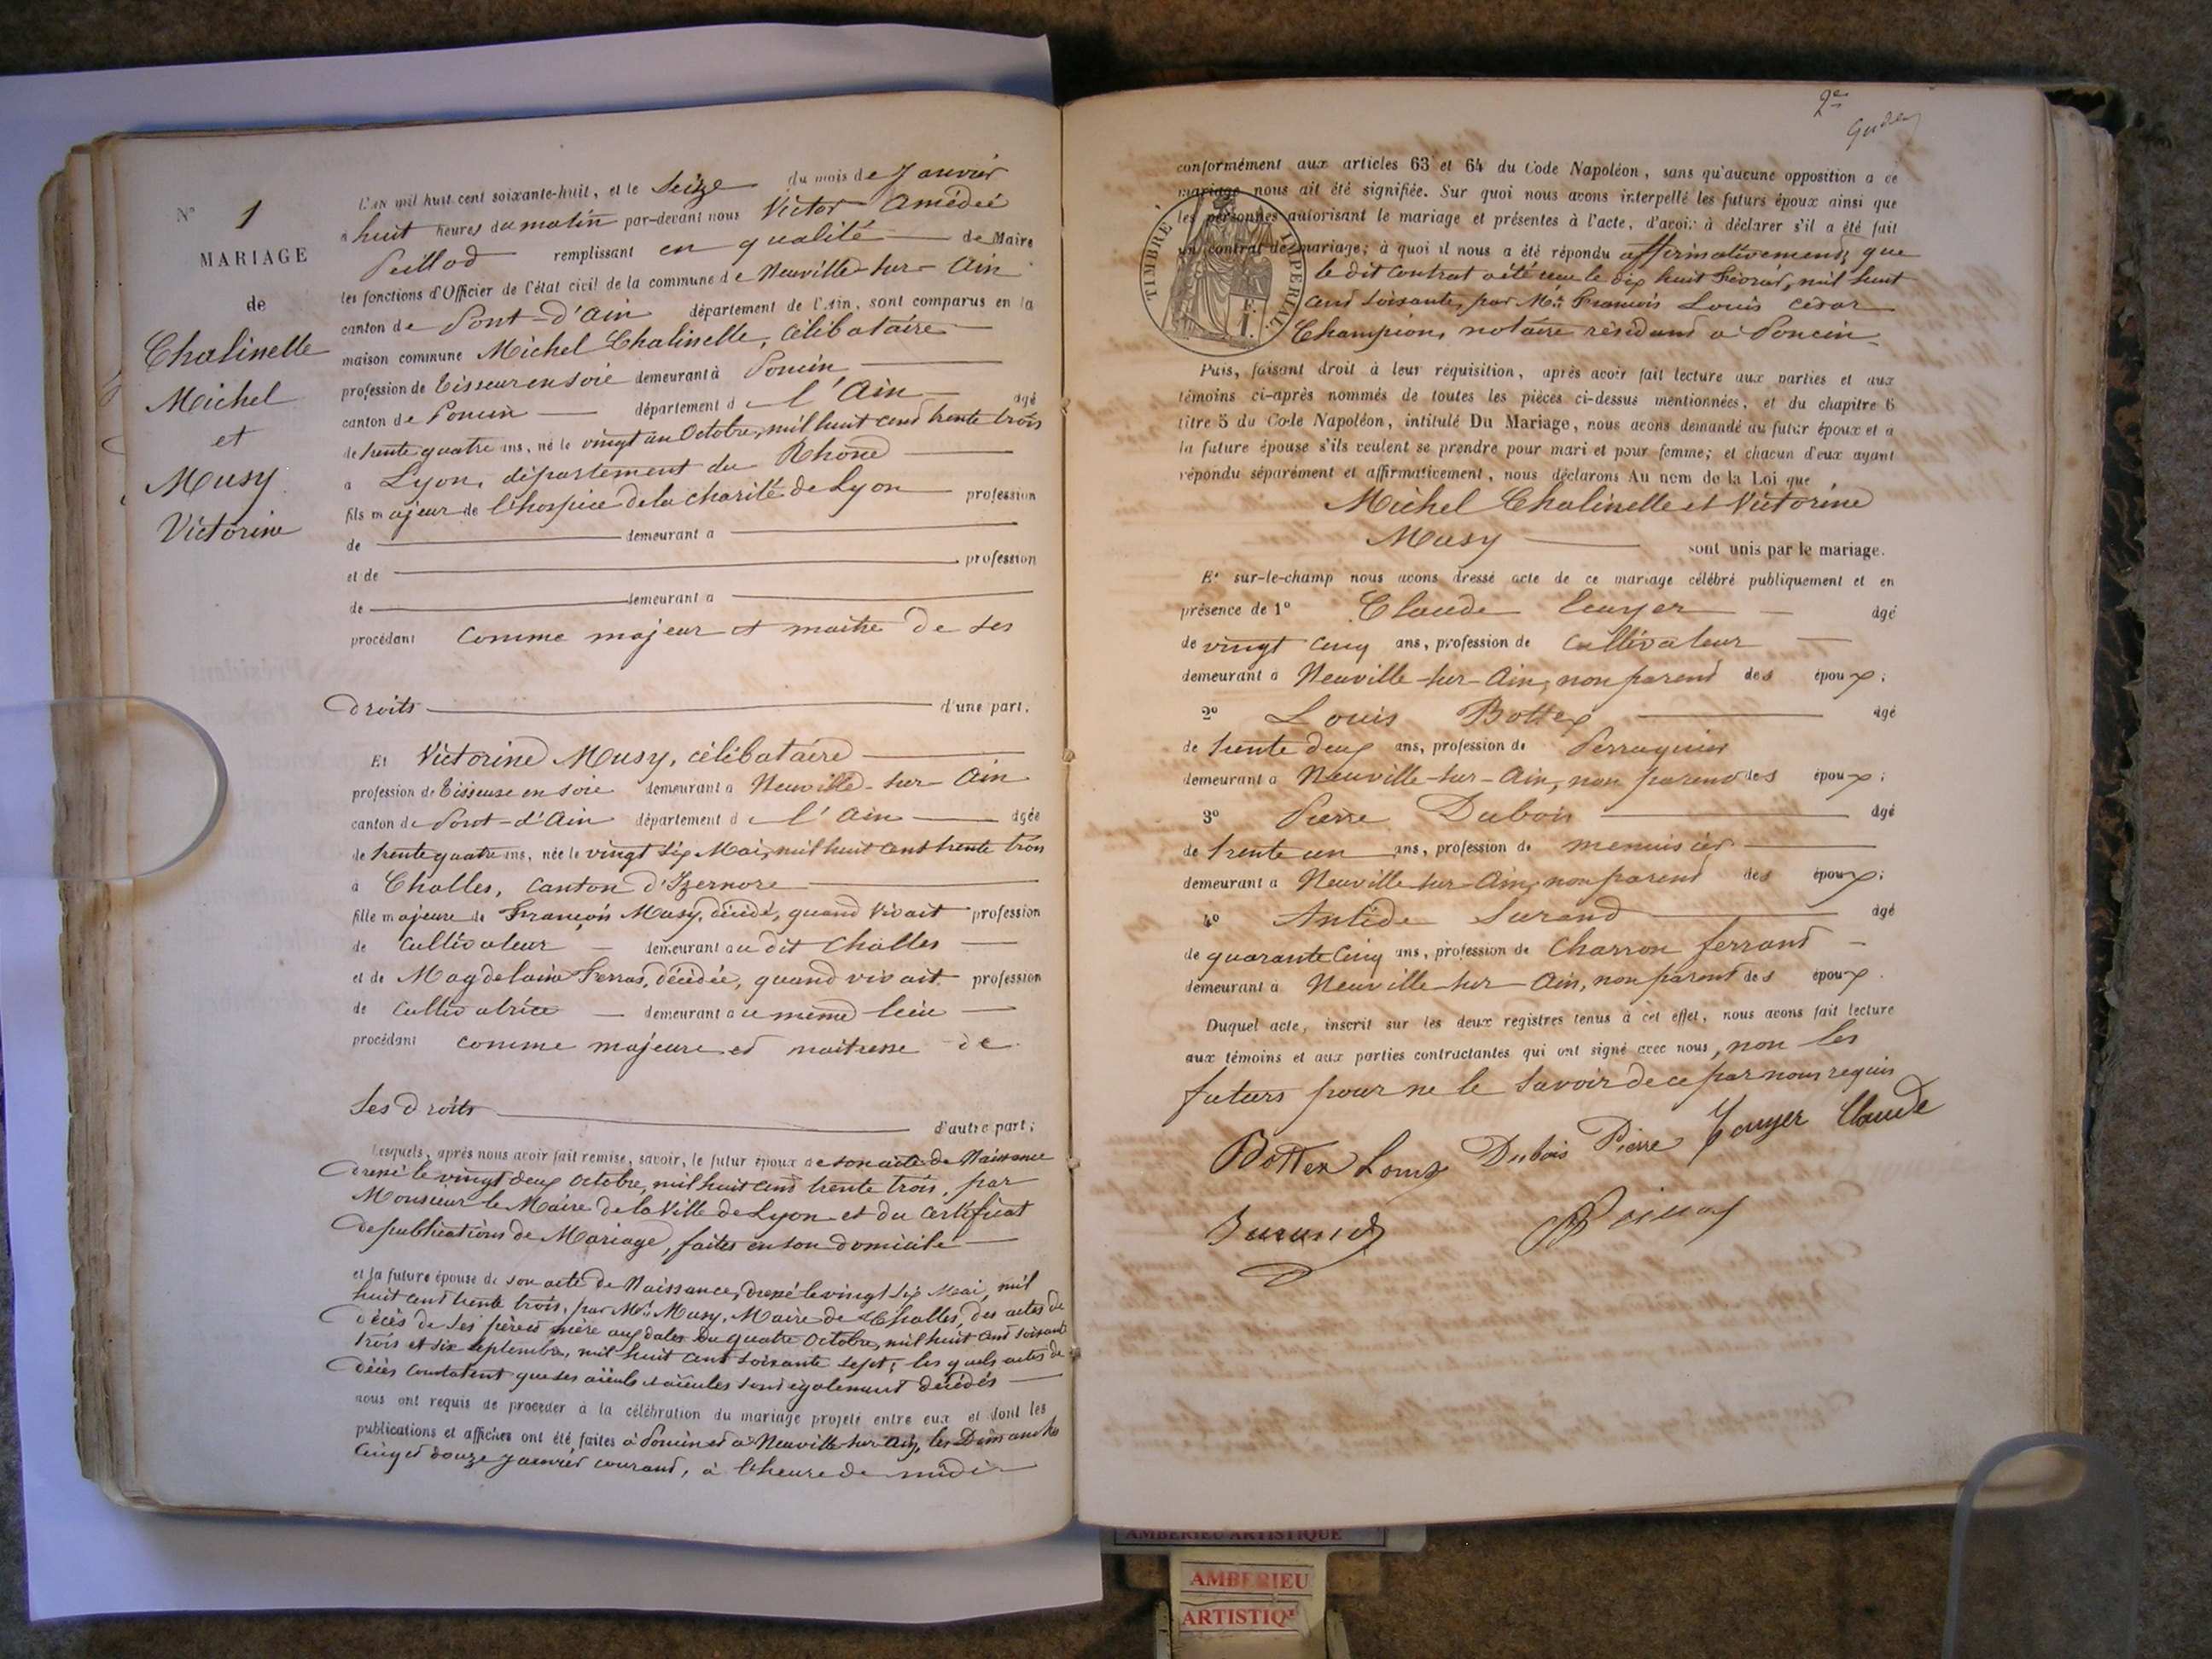 N° 1
MARIAGE
de
Chalinelle
Michel
et
Musy
Victorine
L'AN mil huit cent soixante-huit, et le Seize du mois de Janvier
à huit heures du matin par-devant nous Victor Amédée
Peillod remplissant en qualité de Maire
les fonctions d'Officier de l'état civil de la commune de Neuville-sur-Ain
canton de Pont-d'Ain département de l'Ain, sont comparus en la
maison commune Michel Chalinelle, célibataire
profession de Tisseur en soie demeurant à Poncin
canton de Poncin département de l'Ain âgé
de trente quatre ans, né le vingt un Octobre, mil huit cent trente trois
à Lyon, département du Rhône
fils majeur de l'hospice de la charité de Lyon profession
de demeurant à
et de profession
de demeurant à
procédant comme majeur et maître de ses
droits d'une part.
Et Victorine Musy, célibataire
profession de Tisseuse en soie demeurant à Neuville-sur-Ain
canton de Pont-d'Ain département de l'Ain âgée
de trente quatre ans, née le vingt six Mai, mil huit cent trente trois
à Challes, canton d'Izernore
fille majeure de François Musy, décédé, quand vivait profession
de cultivateur demeurant au dit Challes
et de Magdelaine Ferras, décédée, quand vivait profession
de cultivatrice demeurant au même lieu
procédant comme majeure et maitresse de
ses droits d'autre part;
Lesquels, après nous avoir fait remise, savoir, le futur époux de son acte de Naissance
dressé le vingt deux Octobre, mil huit cent trente trois, par
Monsieur le Maire de la Ville de Lyon et du certificat
de publications de Mariage, faites en son domicile
et la future épouse de son acte de Naissance, dressé le vingt six Mai, mil
huit cent trente trois, par Mr. Musy, Maire de Challes, des actes de
décès de ses père et mère aux dates du quatre Octobre, mil huit cent soixante
trois et six septembre, mil huit cent soixante sept; les quels actes de
décès constatent que ses aïeuls et aïeules sont également décédés
nous ont requis de procéder à la célébration du mariage projeté entre eux et dont les
publications et affiches ont été faites à Poncin et à Neuville-sur-Ain, les Dimanches
cinq et douze janvier courant, à l'heure de midi
2e
conformément aux articles 63 et 64 du Code Napoléon, sans qu'aucune opposition à ce
mariage nous ait été signifiée. Sur quoi nous avons interpellé les futurs époux ainsi que
les personnes autorisant le mariage et présentes à l'acte, d'avoir à déclarer s'il a été fait
un contrat de mariage; à quoi il nous a été répondu affirmativement, que
le dit contrat a été reçu le dix huit Février, mil huit
cent soixante, par Me. François Louis César
Champion, notaire résidant à Poncin
TIMBRE IMPERIAL
Puis, faisant droit à leur réquisition, après avoir fait lecture aux parties et aux
témoins ci-après nommés de toutes les pièces ci-dessus mentionnées, et du chapitre 6
titre 5 du Code Napoléon, intitulé Du Mariage, nous avons demandé au futur époux et à
la future épouse s'ils veulent se prendre pour mari et pour femme; et chacun d'eux ayant
répondu séparément et affirmativement, nous déclarons Au nom de la Loi que
Michel Chalinelle et Victorine
Musy sont unis par le mariage.
Et sur-le-champ nous avons dressé acte de ce mariage célébré publiquement et en
présence de 1° Claude âgé
de vingt cinq ans, profession de cultivateur
demeurant à Neuville-sur-Ain, non parent des époux;
2° Louis Bottex âgé
de trente deux ans, profession de Perruquier
demeurant à Neuville-sur-Ain, non parent des époux;
3° Pierre Dubois âgé
de trente un ans, profession de menuisier
demeurant à Neuville-sur-Ain, non parent des époux;
4° Antide Surand âgé
de quarante cinq ans, profession de charron ferrant
demeurant à Neuville-sur-Ain, non parent des époux.
Duquel acte, inscrit sur les deux registres tenus à cet effet, nous avons fait lecture
aux témoins et aux parties contractantes qui ont signé avec nous, non les
futurs pour ne le savoir de ce par nous requis
Bottex Louis Dubois Pierre Claude
AMBERIEU ARTISTIQUE
AMBERIEU
ARTISTIQ